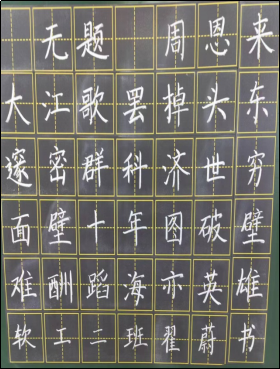 无题 周恩来
大江歌罢掉头东
邃密群科济世穷
面壁十年图破壁
难酬蹈海亦英雄
软工二班翟蔚书